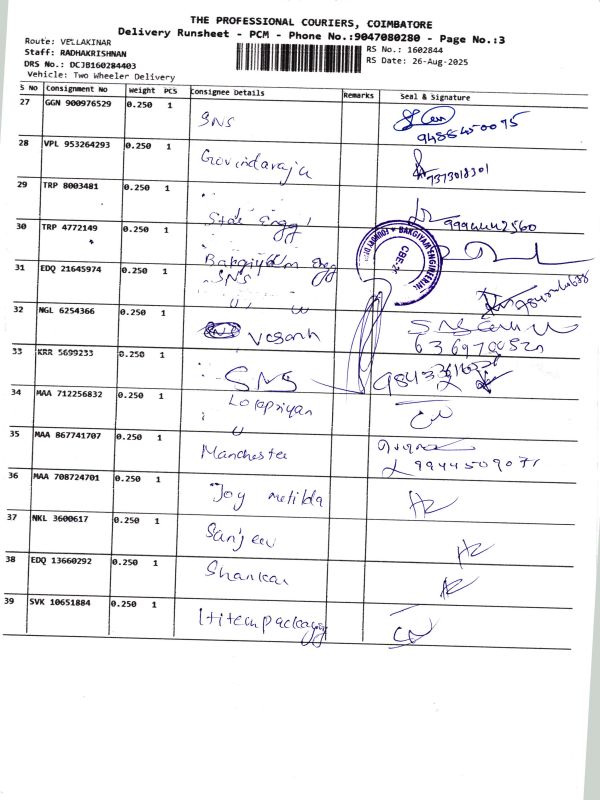 THE PROFESSIONAL COURIERS, COIMBATORE
Delivery Runsheet - PCM - Phone No.:9047080280 - Page No.:3
Route: VELLAKINAR
Staff: RADHAKRISHNAN
DRS No.: DCJB160284403
Vehicle: Two Wheeler Delivery
RS No.: 1602844
RS Date: 26-Aug-2025
S No Consignment No Weight PCS Consignee Details Remarks Seal & Signature
27 GGN 900976529 0.250 1 SNS 9488450095
28 VPL 953264293 0.250 1 Govindaraju 7373018301
29 TRP 8003481 0.250 1 Star Engg
30 TRP 4772149 0.250 1 Bakgiyam Engg
31 EDQ 21645974 0.250 1 SNS
32 NGL 6254366 0.250 1
33 KRR 5699233 0.250 1 SNS
34 MAA 712256832 0.250 1
35 MAA 867741707 0.250 1 Manchester 9944509071
36 MAA 708724701 0.250 1 Joy metilda
37 NKL 3600617 0.250 1 Sanjeev
38 EDQ 13660292 0.250 1 Shankar
39 SVK 10651884 0.250 1